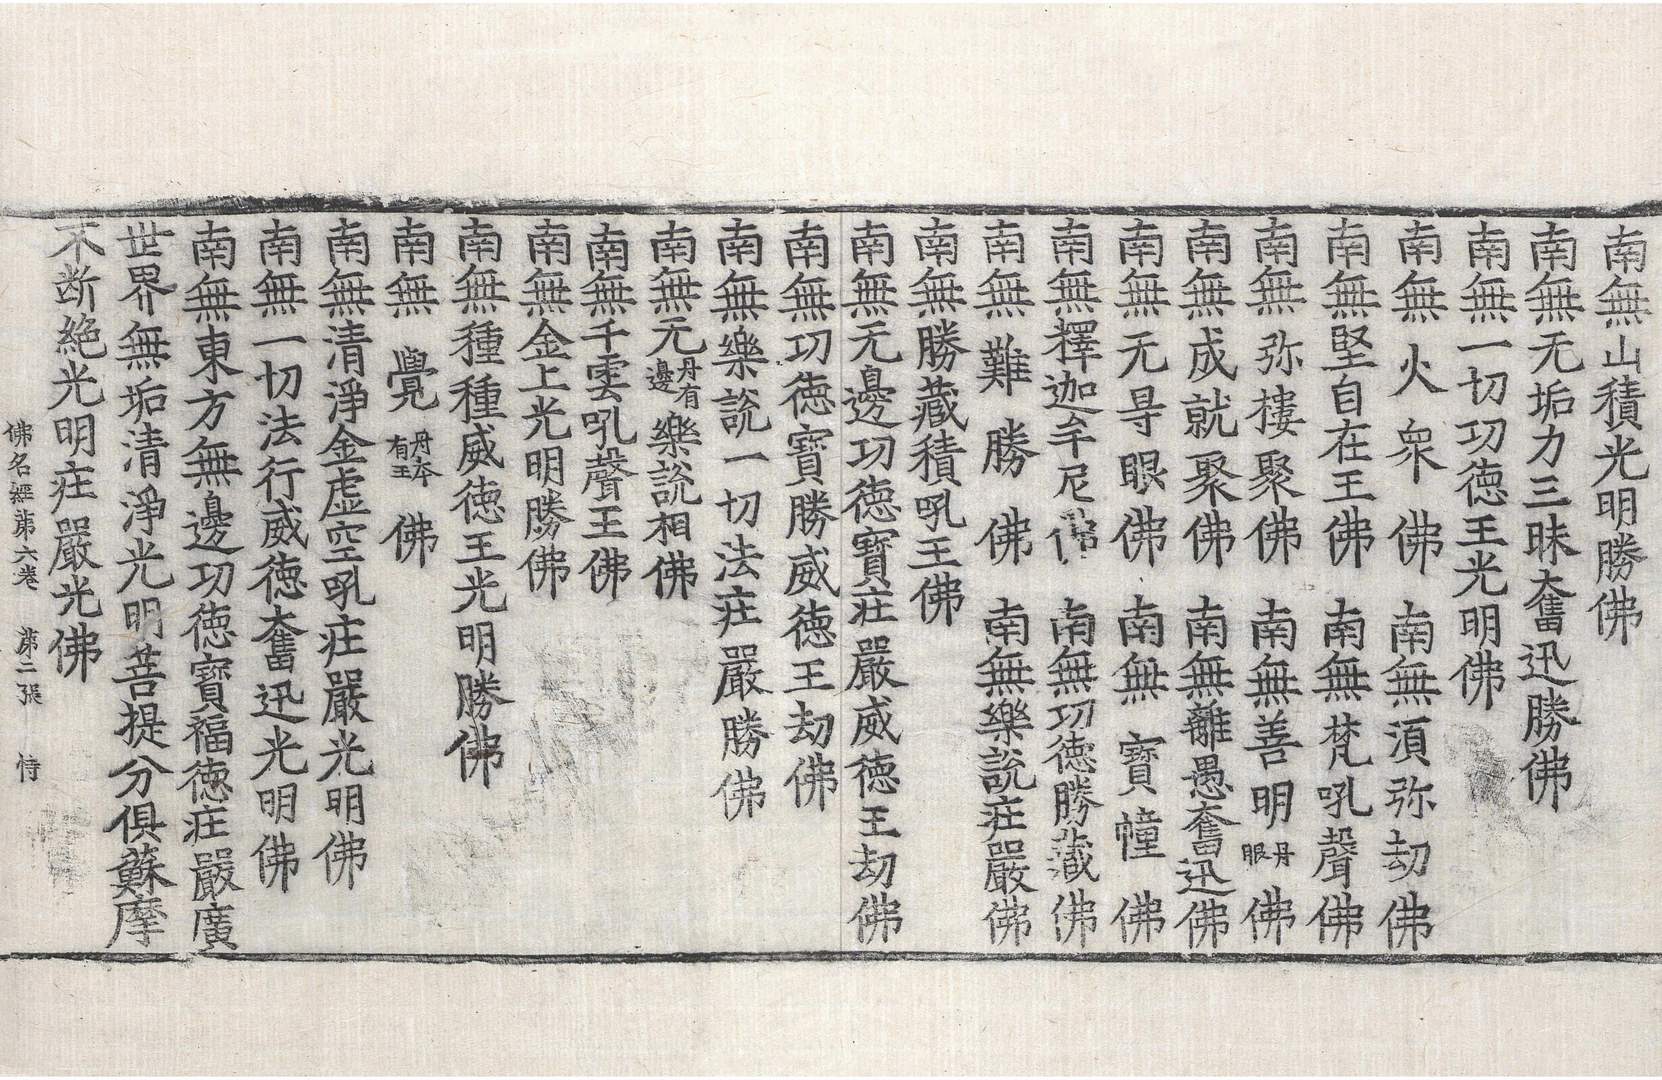 南無山積光明勝佛
南無无垢力三昧奮迅勝佛
南無一切功德王光明佛
南無火衆佛 南無湏弥劫佛
南無堅自在王佛 南無梵吼聲佛
南無弥樓聚佛 南無善明丹眼佛
南無成就聚佛 南無離愚奮迅佛
南無无㝵眼佛 南無寶幢佛
南無釋迦牟尼佛 南無功德勝藏佛
南無難勝佛 南無樂說莊嚴佛
南無勝藏積吼王佛
南無无邊功德寶莊嚴威德王劫佛
南無功德寶勝威德王劫佛
南無樂說一切法莊嚴勝佛
南無无丹有邊樂說相佛
南無千雲吼聲王佛
南無金上光明勝佛
南無種種威德王光明勝佛
南無覺丹本有王佛
南無清淨金虛空吼莊嚴光明佛
南無一切法行威德奮迅光明佛
南無東方無邊功德寶福德莊嚴廣
世界無垢清淨光明菩提分俱蘇摩
不断絶光明莊嚴光佛
佛名經第六卷 第二張 恃